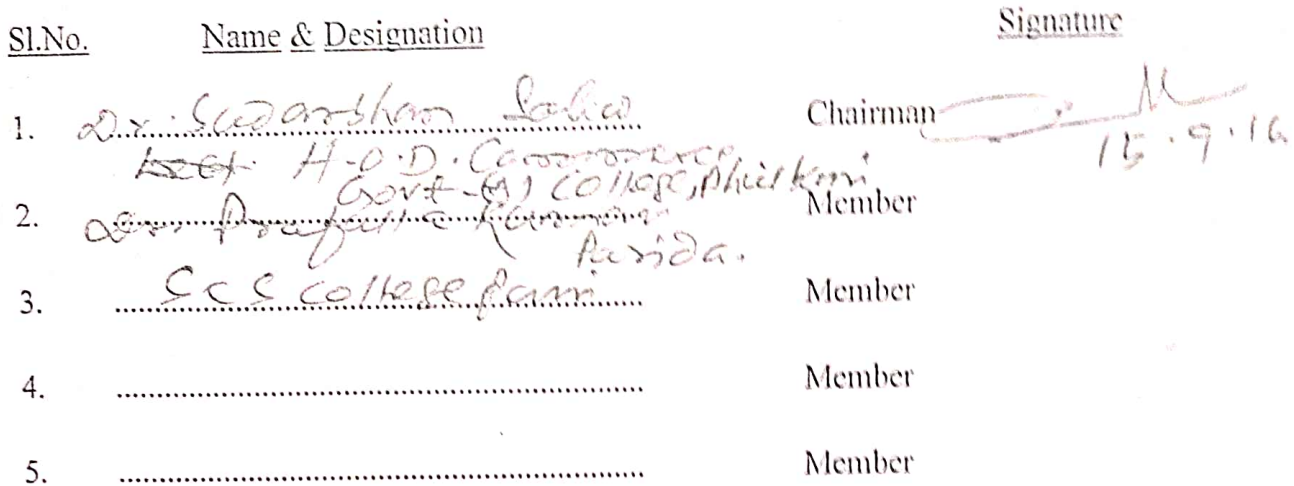 Sl.No. Name & Designation Signature
1. Dr. Sudarshan Sahu Chairman
15.9.16
H.O.D. Commerce
Govt. College, Phulbani
2. Dr. Prafulla Kumar Member
Parida.
3. SCS College Puri Member
4. Member
5. Member